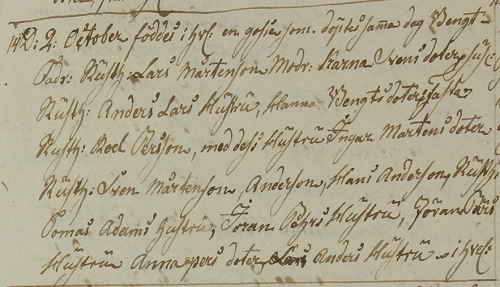 D: 2: October föddes i hvf: en gosse som döptes samma dag Bengt
Fadr: Rusth: Lars Mårtenson Modr: Karna Svens doter
Rusth: Anders Lars Hustru, Hanna Bengts doter
Rusth: Poel Persson, med dess Hustru Ingar Mårtens doter
Rusth: Sven Mårtenson, Anderson, Hans Anderson, Rusth:
Tomas Adams hustru, Jöran Pehrs Hustru, Jöran Lars
Hustru Anna pers doter Lars Anders Hustru i hvf: